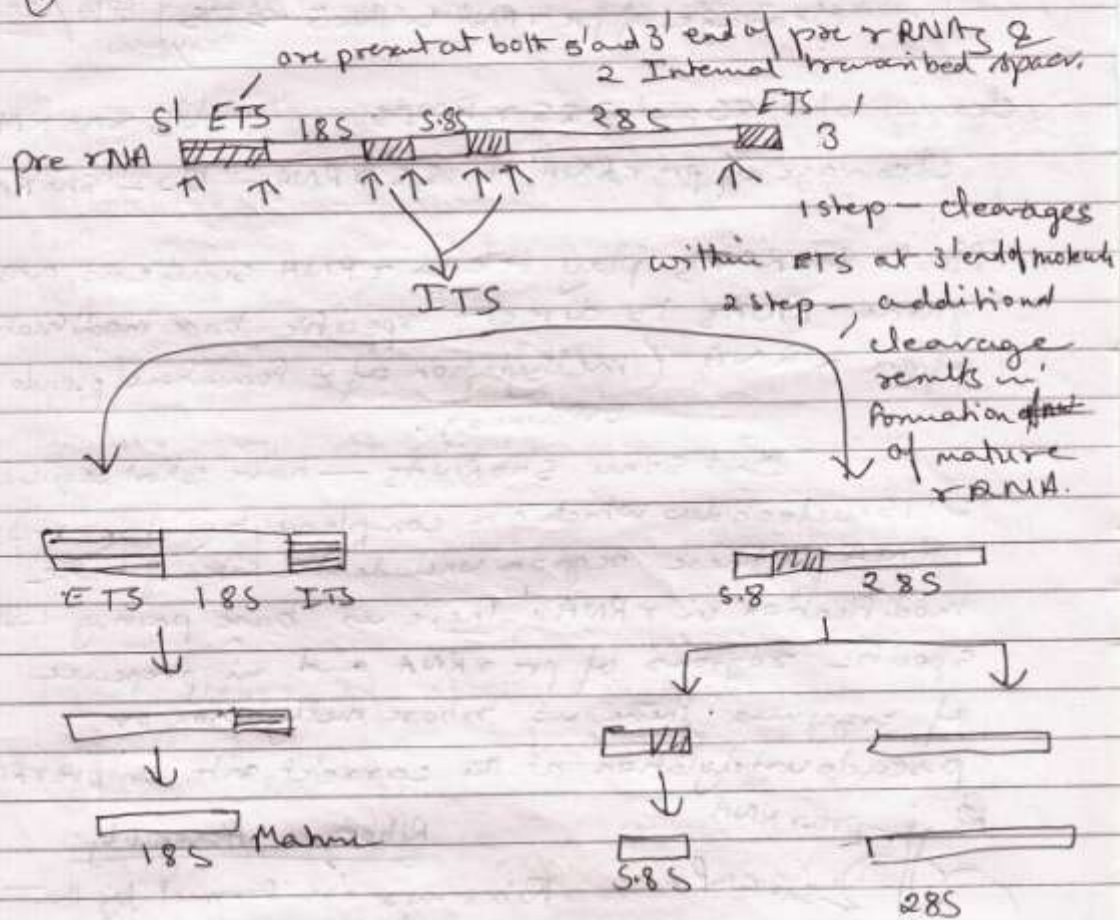 are present at both 5' and 3' end of pre rRNAs &
2 Internal transcribed spacer.
5' ETS 18S 5.8S 28S ETS
pre rNA 3
1 step - cleavages
within ETS at 3' end of molecule
ITS
2 step - additional
cleavage
results in
formation
of mature
rRNA.
ETS 18S ITS
5.8 28S
18S Mature
5.8S
28S